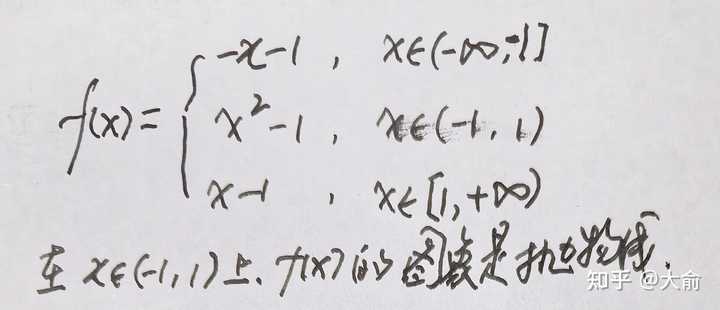 f(x)={ -x-1 , x∈(-∞,-1]
x²-1 , x∈(-1,1)
x-1 , x∈[1,+∞)
在 x∈(-1,1)上, f(x)的图象是抛物线.
知乎 @大俞